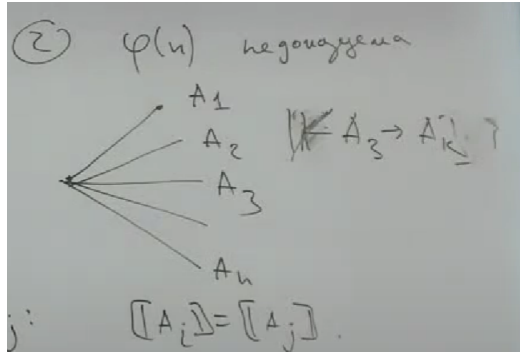 ② φ(n) недоказуема
A1
A2 A3 → Ak ?
A3
An
j: [[Ai]] = [[Aj]].